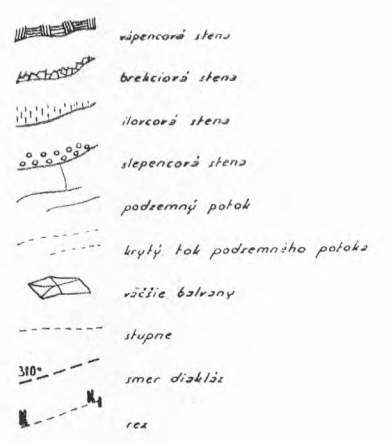 vápencová stena
brekciová stena
ílorcová stena
slepencová stena
podzemný potok
krytý tok podzemného potoka
väčšie balvany
stupne
310° smer diakláz
rez